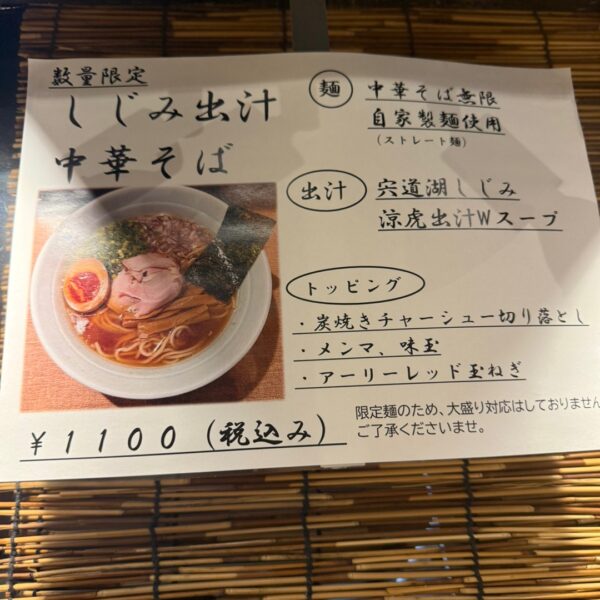 数量限定
しじみ出汁
中華そば
麺
中華そば無限
自家製麺使用
(ストレート麺)
出汁
宍道湖しじみ
涼虎出汁Wスープ
トッピング
・炭焼きチャーシュー切り落とし
・メンマ、味玉
・アーリーレッド玉ねぎ
限定麺のため、大盛り対応はしておりません
ご了承くださいませ。
￥1100(税込み)